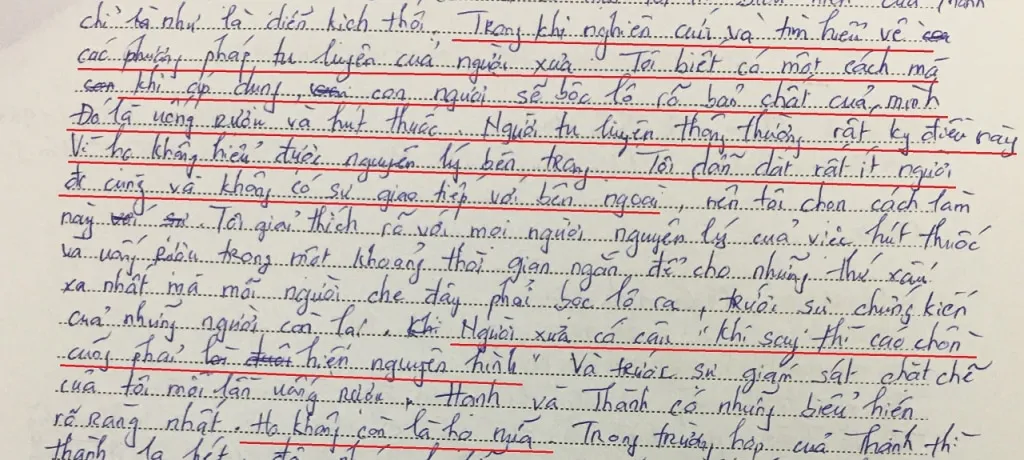 chỉ là như là diễn kịch thôi. Trong khi nghiên cứu và tìm hiểu về
các phương pháp tu luyện của người xưa. Tôi biết có một cách mà
khi áp dụng, con người sẽ bộc lộ rõ bản chất của mình
Đó là uống rượu và hút thuốc. Người tu luyện thông thường rất kỵ điều này
Vì họ không hiểu được nguyên lý bên trong. Tôi dẫn dắt rất ít người
đi cùng và không có sự giao tiếp với bên ngoài, nên tôi chọn cách làm
này. Tôi giải thích rõ với mọi người nguyên lý của việc hút thuốc
và uống rượu trong một khoảng thời gian ngắn, để cho những thứ xấu
xa nhất mà mỗi người che đậy phải bộc lộ ra, trước sự chứng kiến
của những người còn lại. Người xưa có câu "khi say thì cáo chồn
cũng phải hiện nguyên hình" Và trước sự giám sát chặt chẽ
của tôi mỗi lần uống rượu, Hạnh và Thành có những biểu hiện
rõ ràng nhất. Họ không còn là họ nữa. Trong trường hợp của Thành thì